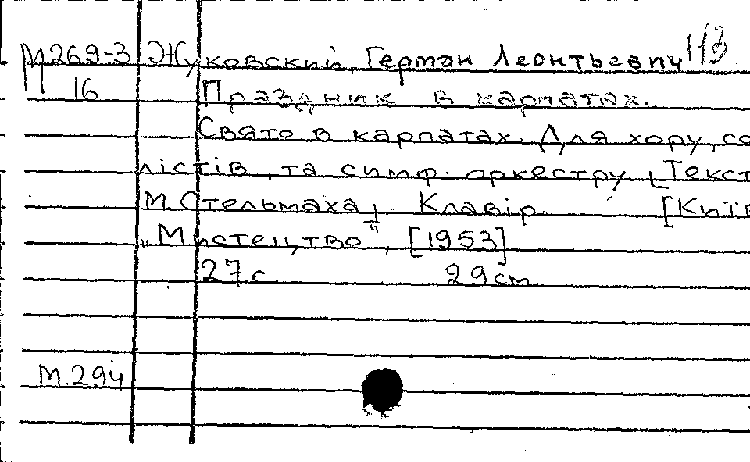 М269-3 Жуковский, Герман Леонтьевич
16 Праздник в карпатах.
Свято в карпатах. Для хору, со
лістів, та симф. оркестру [Текст
М. Стельмаха] Клавір [Київ
„Мистецтво", [1953]
27 с 29 cm
М. 294